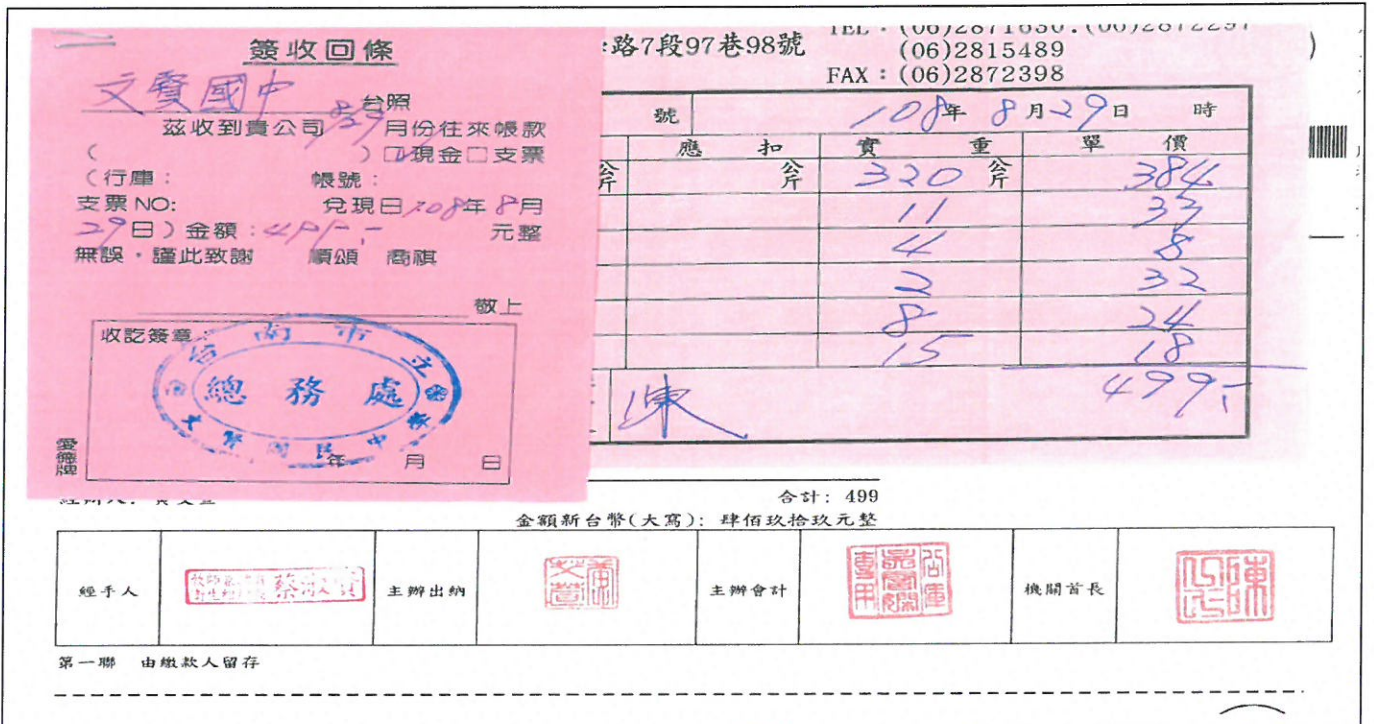 簽收回條
文賢國中 台照
茲收到貴公司 8/29 月份往來帳款
( ) ☑現金□支票
(行庫: 帳號:
支票 NO: 兌現日108年8月
29日)金額:499.- 元整
無誤・謹此致謝 順頌 商祺
敬上
收訖簽章:
台南市立
總務處
文賢國民中學
年 月 日
愛德牌
路7段97巷98號
TEL:(06)2871630.(06)2872297
(06)2815489
FAX:(06)2872398
號 108年 8月29日 時
應 扣 實 重 單 價
公斤 公斤 320 公斤 384
11 33
4 8
2 32
8 24
15 18
陳 499.-
合計: 499
金額新台幣(大寫): 肆佰玖拾玖元整
經手人 主辦出納 主辦會計 機關首長
第一聯 由繳款人留存